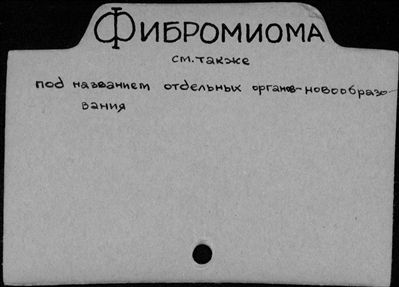 ФИБРОМИОМА
см. также
под названием отдельных органов-новообразо-
вания